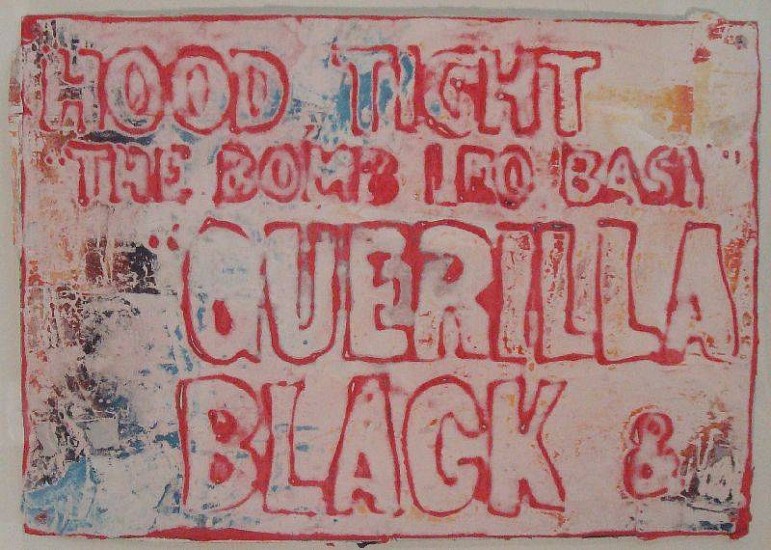 HOOD TIGHT
"THE BOMB IMO BASI"
"GUERILLA
BLACK &